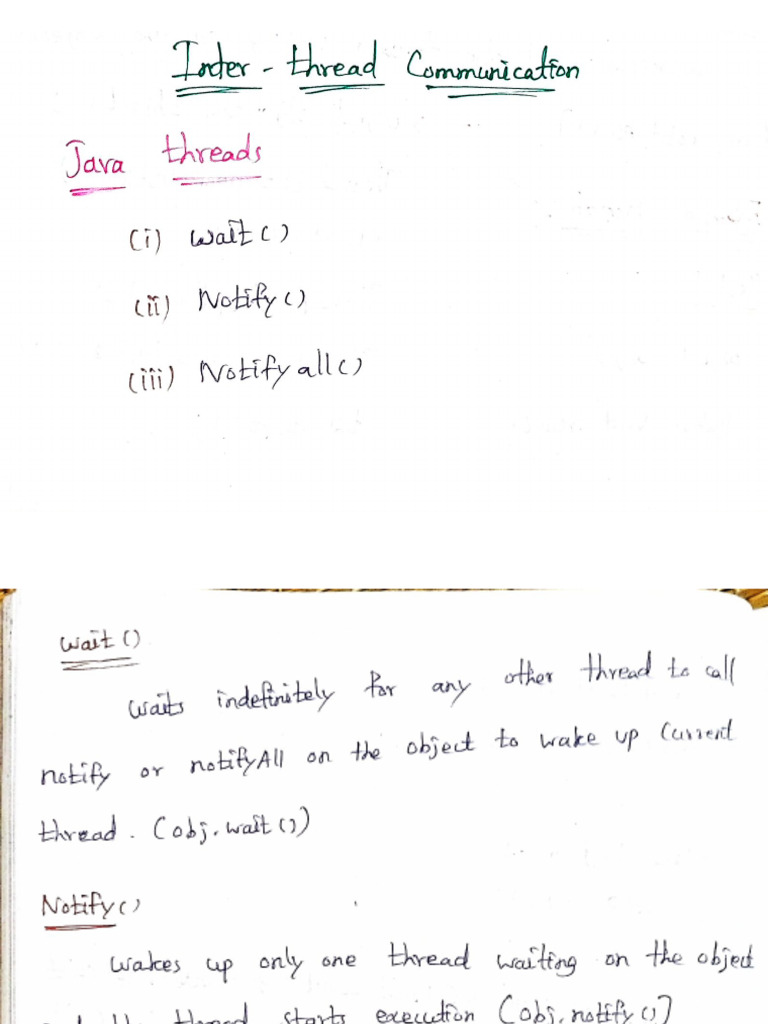 Inter - thread Communication
Java threads
(i) wait()
(ii) Notify()
(iii) Notify all()
wait()
waits indefinitely for any other thread to call
notify or notifyAll on the object to wake up Current
thread. (obj.wait())
Notify()
wakes up only one thread waiting on the object
starts execution (obj.notify())